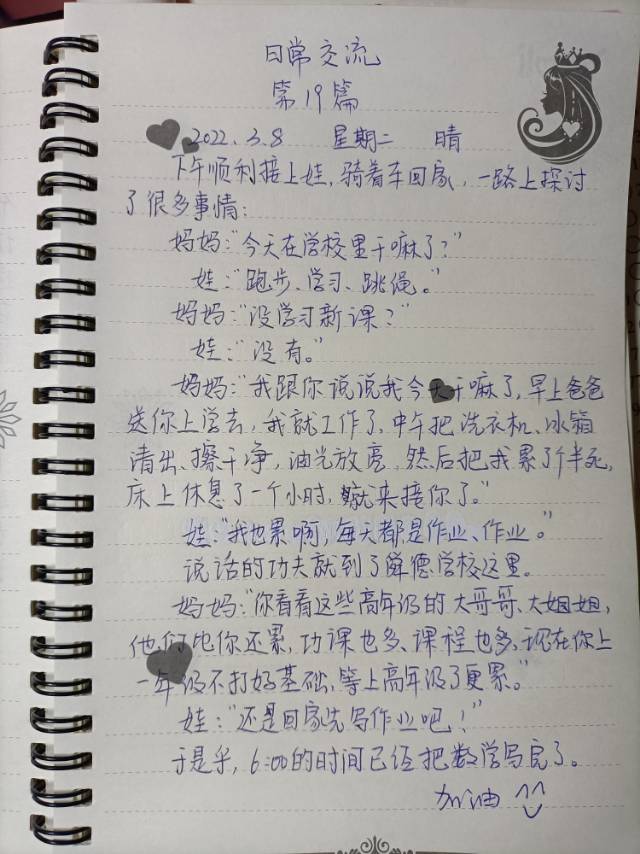 日常交流
第19篇
2022.3.8 星期二 晴
下午顺利接上娃,骑着车回家,一路上探讨
了很多事情:
妈妈:“今天在学校里干嘛了?”
娃:“跑步、学习、跳绳。”
妈妈:“没学习新课?”
娃:“没有。”
妈妈:“我跟你说说我今天干嘛了,早上爸爸
送你上学去,我就工作了,中午把洗衣机、冰箱
清出、擦干净,油光放亮,然后把我累了个半死,
床上休息了一个小时,就来接你了。”
娃:“我也累啊,每天都是作业、作业。”
说话的功夫就到了德学校这里。
妈妈:“你看看这些高年级的大哥哥、大姐姐,
他们比你还累,功课也多、课程也多,现在你上
一年级不打好基础,等上高年级了更累。”
娃:“还是回家先写作业吧!”
于是乎,6:00的时间已经把数学写完了。
加油 ^^